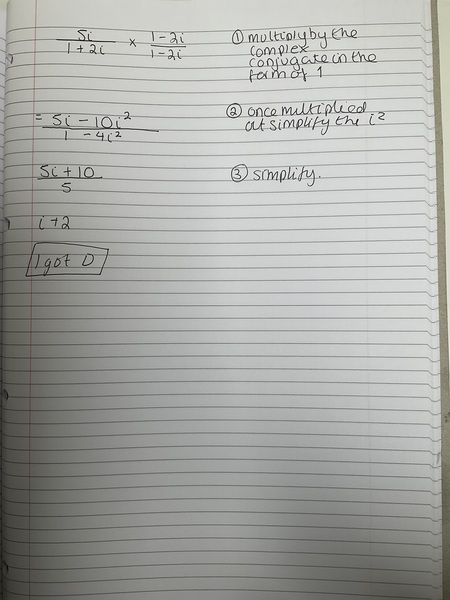 5i / 1 + 2i × 1 - 2i / 1 - 2i
① multiply by the
complex
conjugate in the
form of 1
= 5i - 10i² / 1 - 4i²
② once multiplied
out simplify the i²
5i + 10 / 5
③ simplify.
i + 2
I got D